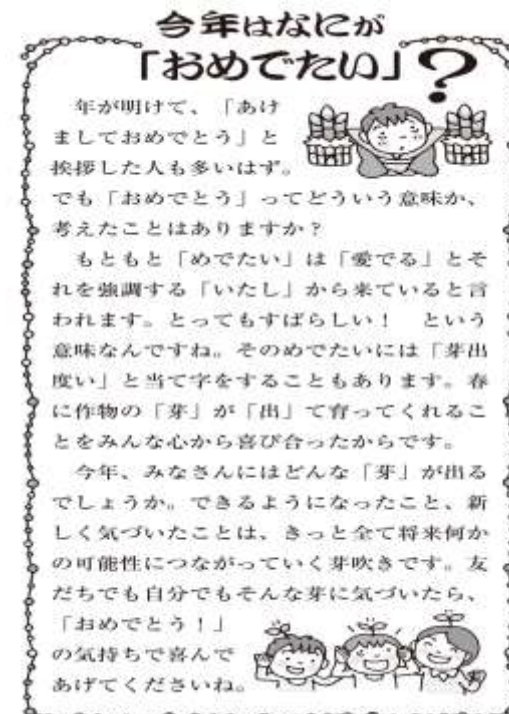 今年はなにが
「おめでたい」?
年が明けて、「あけ
ましておめでとう」と
挨拶した人も多いはず。
でも「おめでとう」ってどういう意味か、
考えたことはありますか?
もともと「めでたい」は「愛でる」とそ
れを強調する「いたし」から来ていると言
われます。とってもすばらしい! という
意味なんですね。そのめでたいには「芽出
度い」と当て字をすることもあります。春
に作物の「芽」が「出」て育ってくれるこ
とをみんな心から喜び合ったからです。
今年、みなさんにはどんな「芽」が出る
でしょうか。できるようになったこと、新
しく気づいたことは、きっと全て将来何か
の可能性につながっていく芽吹きです。友
だちでも自分でもそんな芽に気づいたら、
「おめでとう!」
の気持ちで喜んで
あげてくださいね。